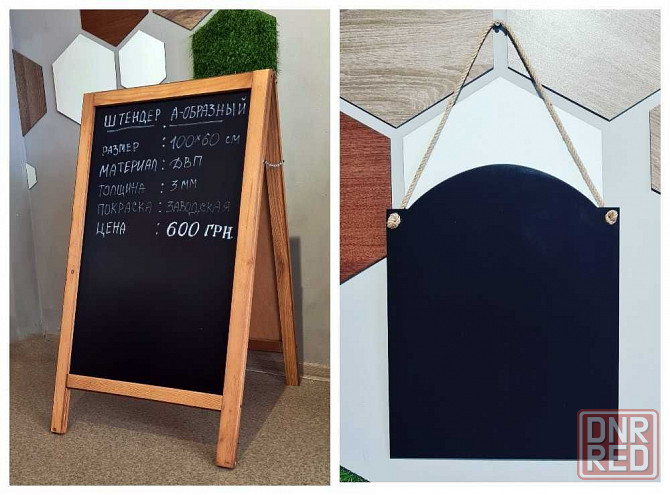 ШТЕНДЕР А-ОБРАЗНЫЙ
РАЗМЕР : 100*60 см
МАТЕРИАЛ : ДВП
ТОЛЩИНА : 3 мм
ПОКРАСКА : ЗАВОДСКАЯ
ЦЕНА : 600 ГРН.
DNR
RED